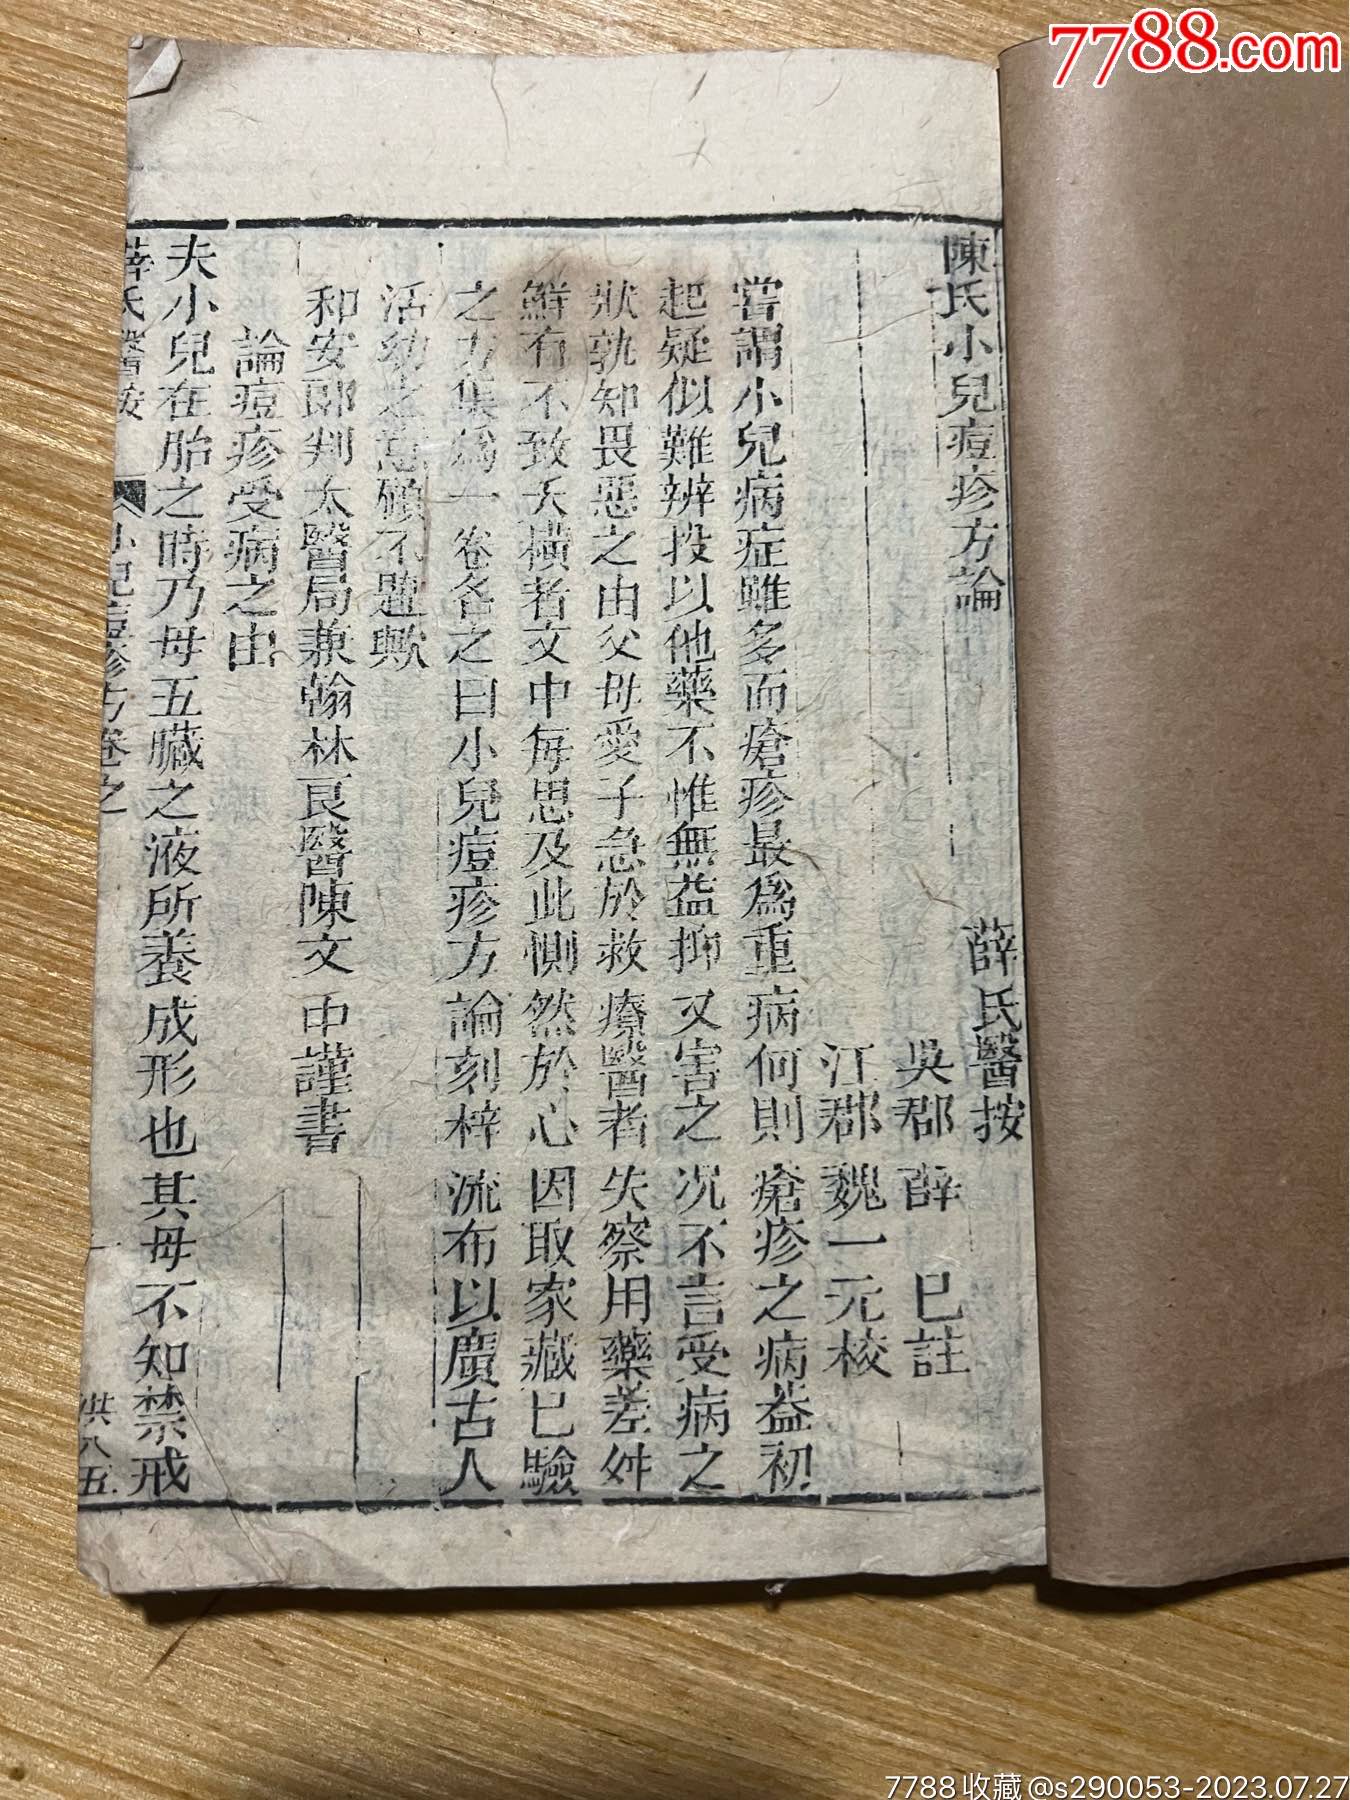 7788.com
陳氏小兒痘疹方論
薛氏醫按
吳郡 薛 己註
江郡 魏一元校
嘗謂小兒病症雖多而瘡疹最爲重病何則瘡疹之病葢初
起疑似難辨投以他藥不惟無益抑又害之况不言受病之
狀孰知畏惡之由父母愛子急於救療醫者失察用藥差舛
鮮有不致夭橫者文中每思及此惻然於心因取家藏已驗
之方集爲一卷名之曰小兒痘疹方論刻梓流布以廣古人
活幼之意顧不韙歟
和安郎判太醫局兼翰林良醫陳文中謹書
論痘疹受病之由
夫小兒在胎之時乃母五臟之液所養成形也其母不知禁戒
薛氏醫按 小兒痘疹方卷之 一 洪八五
7788收藏@s290053-2023.07.27